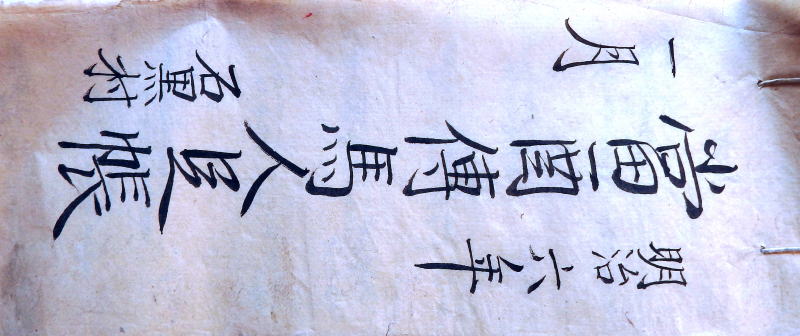 明治六年
當酉傳馬人足帳
一月
石黒村